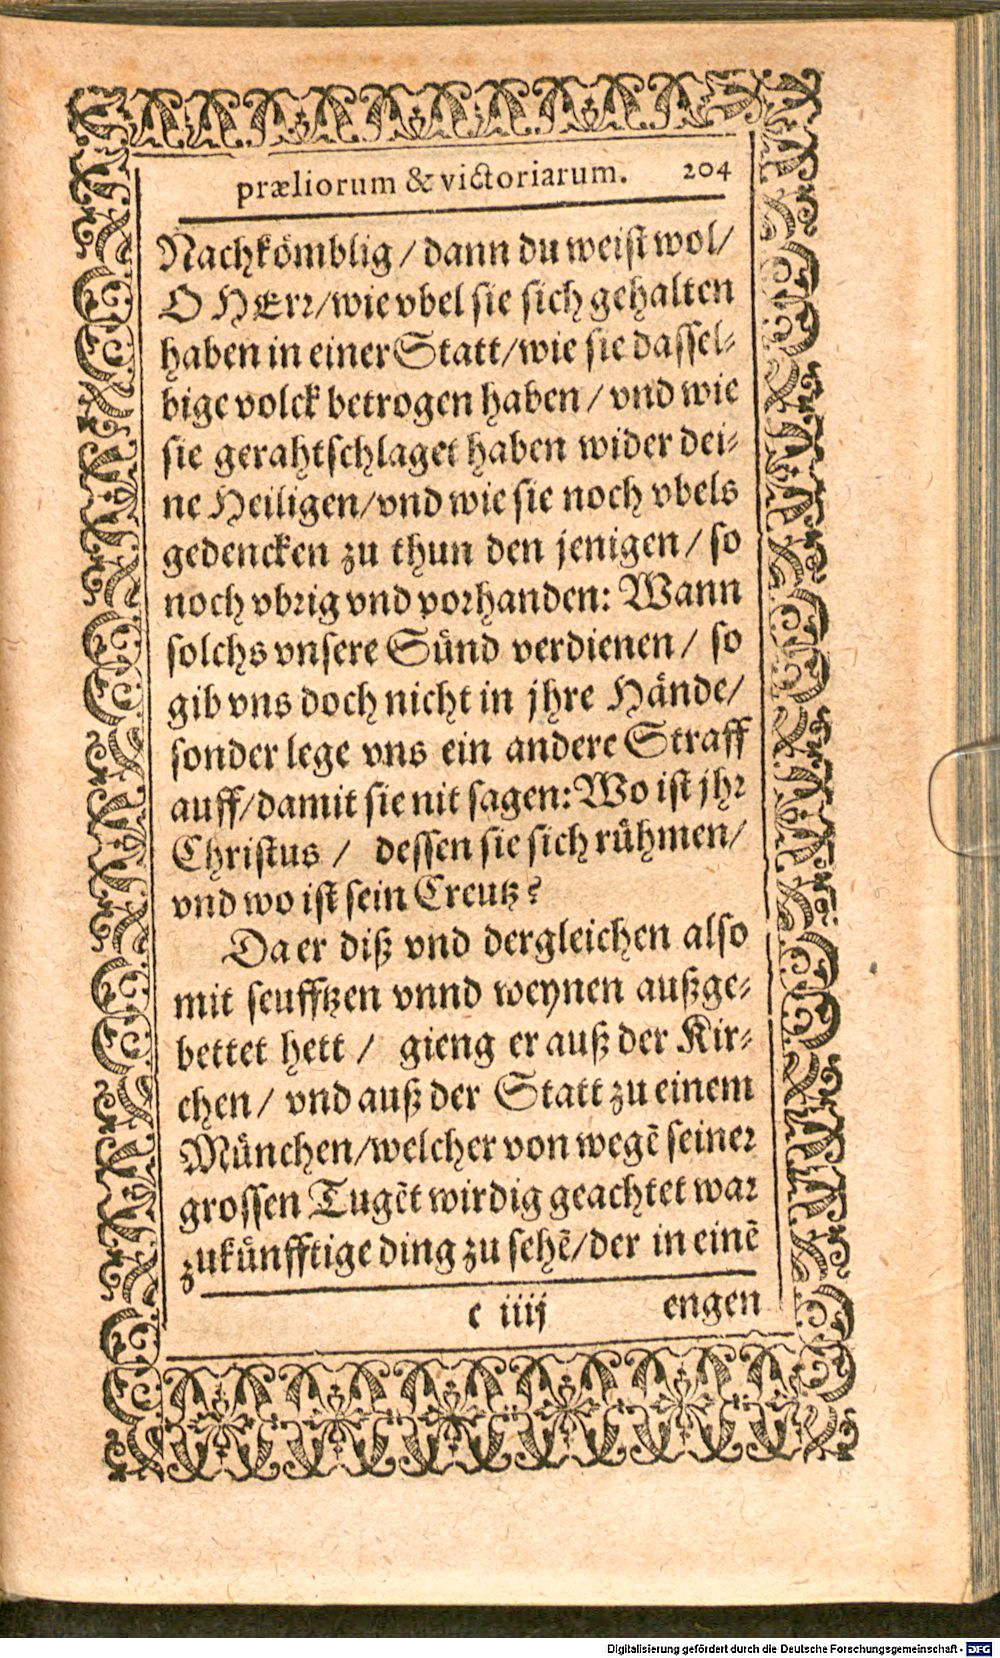 præliorum & victoriarum. 204
Nachkömblig / dann du weist wol /
O HErr / wie vbel sie sich gehalten
haben in einer Statt / wie sie dassel-
bige volck betrogen haben / vnd wie
sie gerahtschlaget haben wider dei-
ne Heiligen / vnd wie sie noch vbels
gedencken zu thun den jenigen / so
noch vbrig vnd vorhanden: Wann
solchs vnsere Sünd verdienen / so
gib vns doch nicht in jhre Hände /
sonder lege vns ein andere Straff
auff / damit sie nit sagen: Wo ist jhr
Christus / dessen sie sich rühmen /
vnd wo ist sein Creutz?
Da er diß vnd dergleichen also
mit seufftzen vnnd weynen außge-
bettet hett / gieng er auß der Kir-
chen / vnd auß der Statt zu einem
München / welcher von wegẽ seiner
grossen Tugẽt wirdig geachtet war
zukünfftige ding zu sehẽ / der in einẽ
c iiij engen
Digitalisierung gefördert durch die Deutsche Forschungsgemeinschaft - DFG